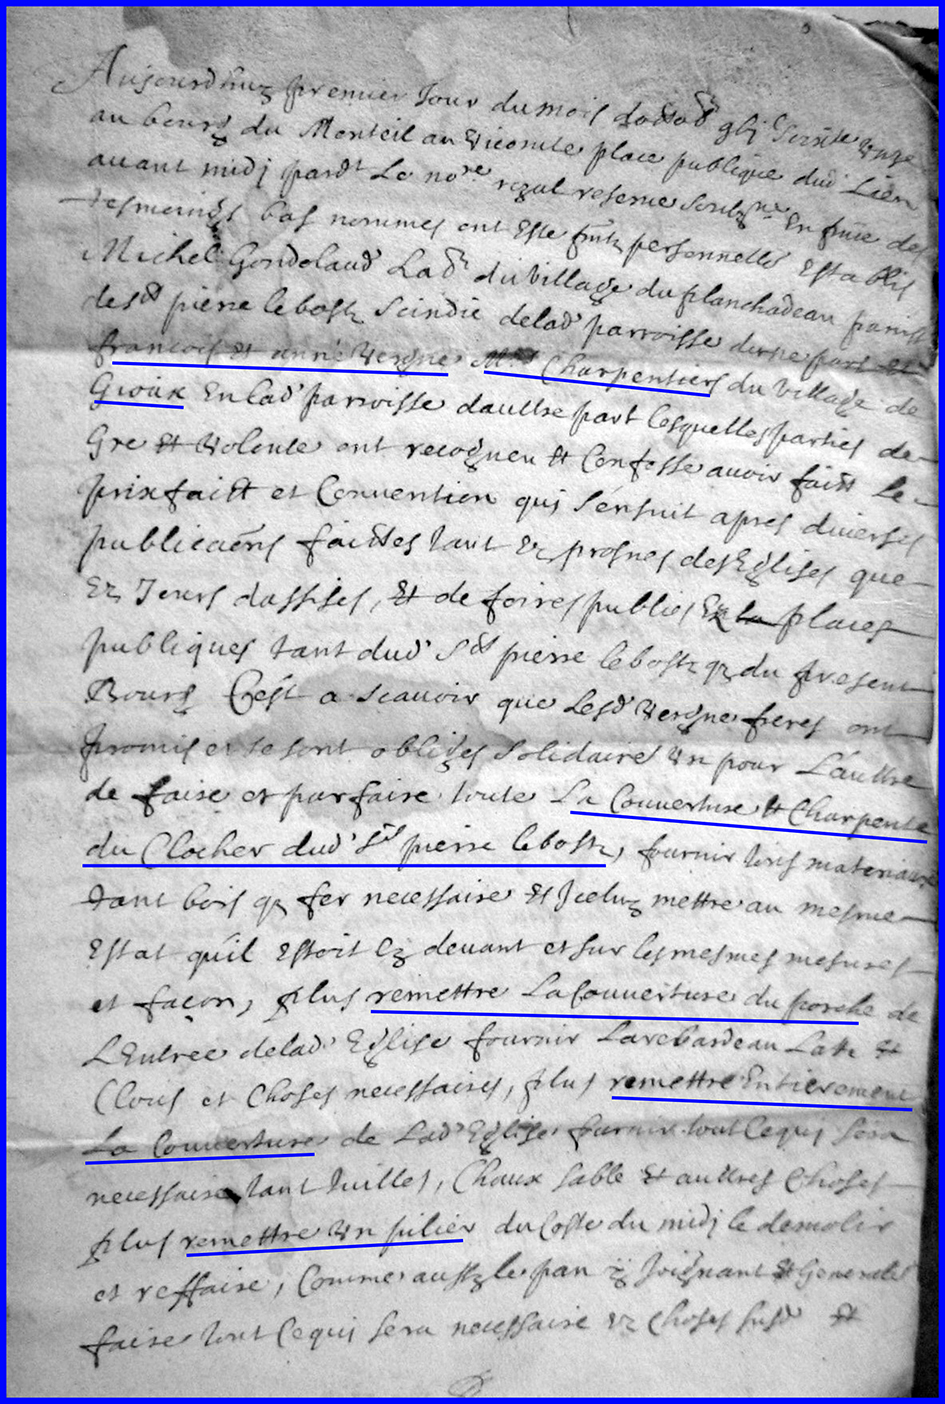 Aujourdhuy premier Jour du mois doctob gbj Soixte unze
au bourg du Monteil au vicomte place publique dud Lieu
auant midj pardt Le nore royal reserue soubzne En pnce des
tesmoings bas nommes ont Este pnts personnellet Establis
Michel Gondolaud Labr du village du planchadeau parroisse
de St pierre lebost Scindic delad parroisse dune part et
francois et anne Vergne Mes Charpentiers du village de
Gioux En lad parroisse daultre part lesquelles parties de
Gre et volonte ont recogneu et Confesse auoir faict Le
prixfaict et Conuention quj s'ensuit apres diuerses
publicaons faictes tant Ez prosnes des Eglises que
Ez Jours dassises, et de foires publies Ex la places
publiques tant dud St pierre lebost q du present
Bourg C'est a scauoir que Lesd Vergne freres ont
promis et se sont obliges solidaires Vn pour L'aultre
de faire et parfaire toute La Couuerture et Charpente
du Clocher dud St pierre lebost, fournir tous materiaux
tant bois q fer necessaire et Jceluy mettre au mesme
Estat qu'il Estoit Cy deuant et sur les mesmes mesures
et façon, plus remettre La Couuerture du porche de
L'Entree delad Eglise fournir Larebardeau Latte et
Clous et Choses necessaires, plus remettre Entierement
La Couuerture de Lad Eglise fournir tout Cequj sera
necessaire tant tuilles, Chaux sable et aultres Choses
plus remettre Vn pilier du Coste du midj le demolir
et reffaire, Comme aussy le pan y Joignant et Generalet
faire tout Cequi sera necessaire Ez Choses susd et